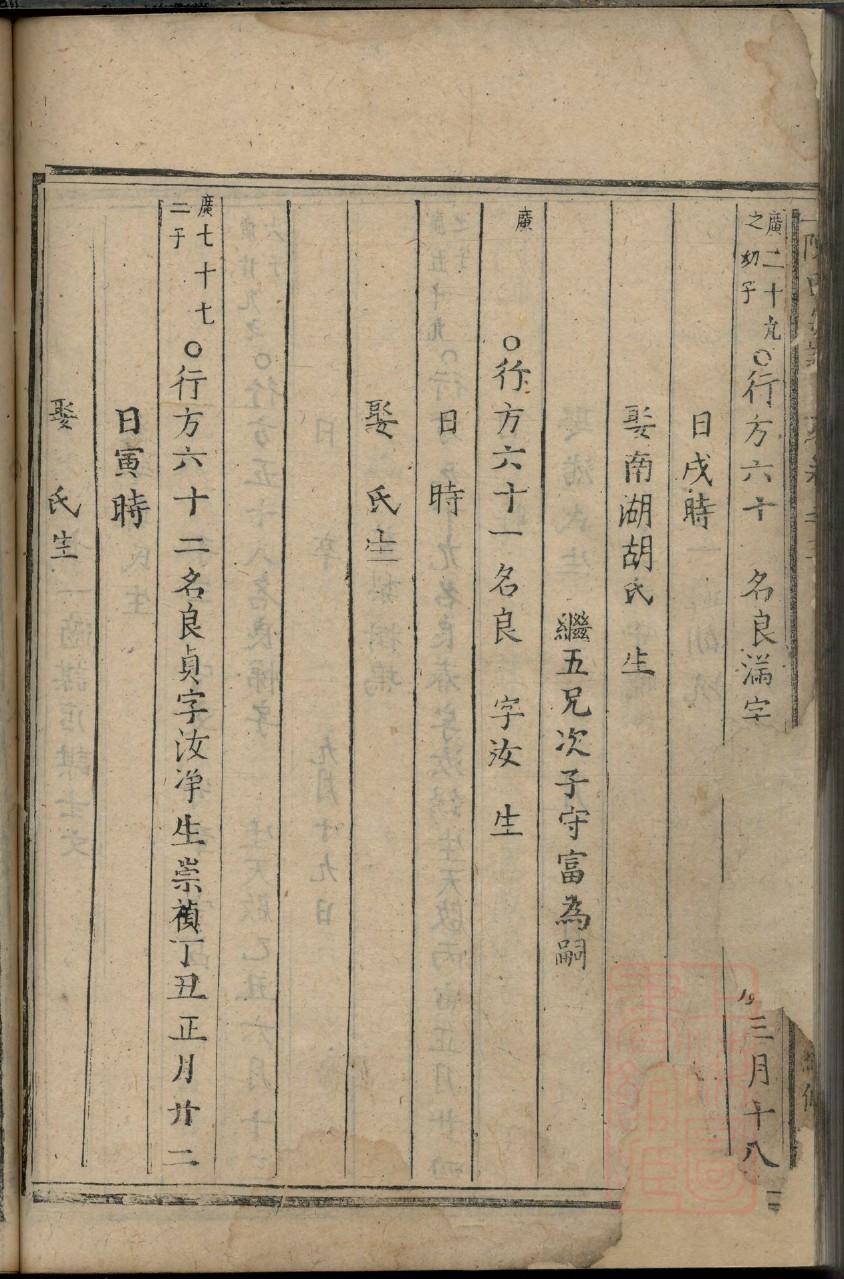 廣二十九
之幼子
○行方六十 名良滿字 三月十八
日戌時
娶南湖胡氏 生
繼五兄次子守富為嗣
廣
○行方六十一名良 字汝 生
日 時
娶 氏 生
廣七十七
二子
○行方六十二名良貞字汝净生崇禎丁丑正月廿二
日寅時
娶 氏生